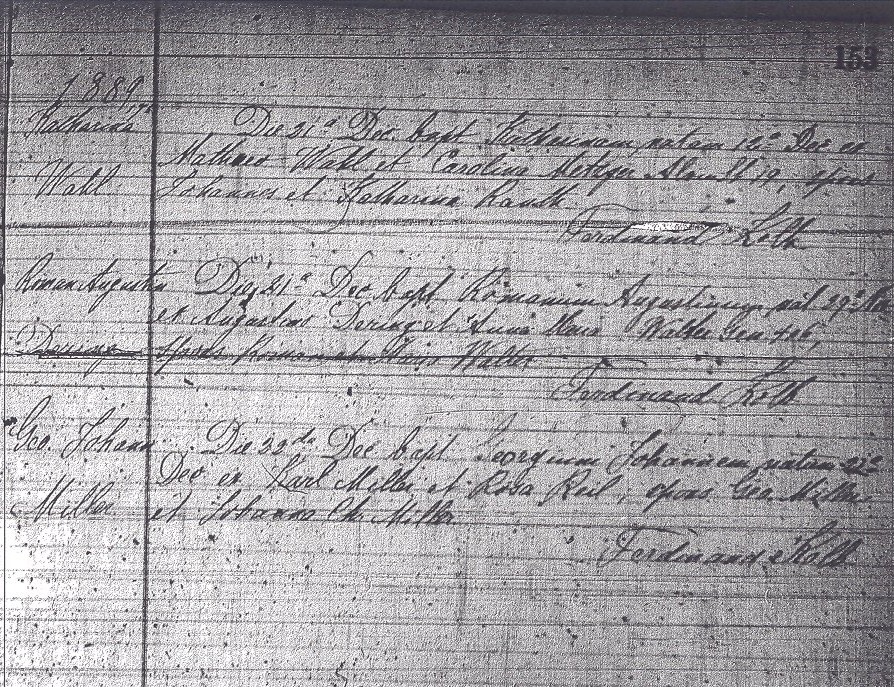 153
1889
Katharina
Wahl
Die 21ª Dec. bapt. natam Dec ex
Wahl et Carolina Metzger
Johannes et Katharina Rauth
Ferdinand Kolb
Roman Augustin
Die 21ª Dec bapt Romanum Augustinum nat 29ª
ex Augustino Dering et Anna Maria Walter
spons Roman et Walter
Ferdinand Kolb
Geo. Johann
Miller
Die 22da Dec bapt Georgium Johannem natum
Dec ex Karl Miller et Rosa Reil, spons Geo Miller
et Johanna Ch. Miller
Ferdinand Kolb